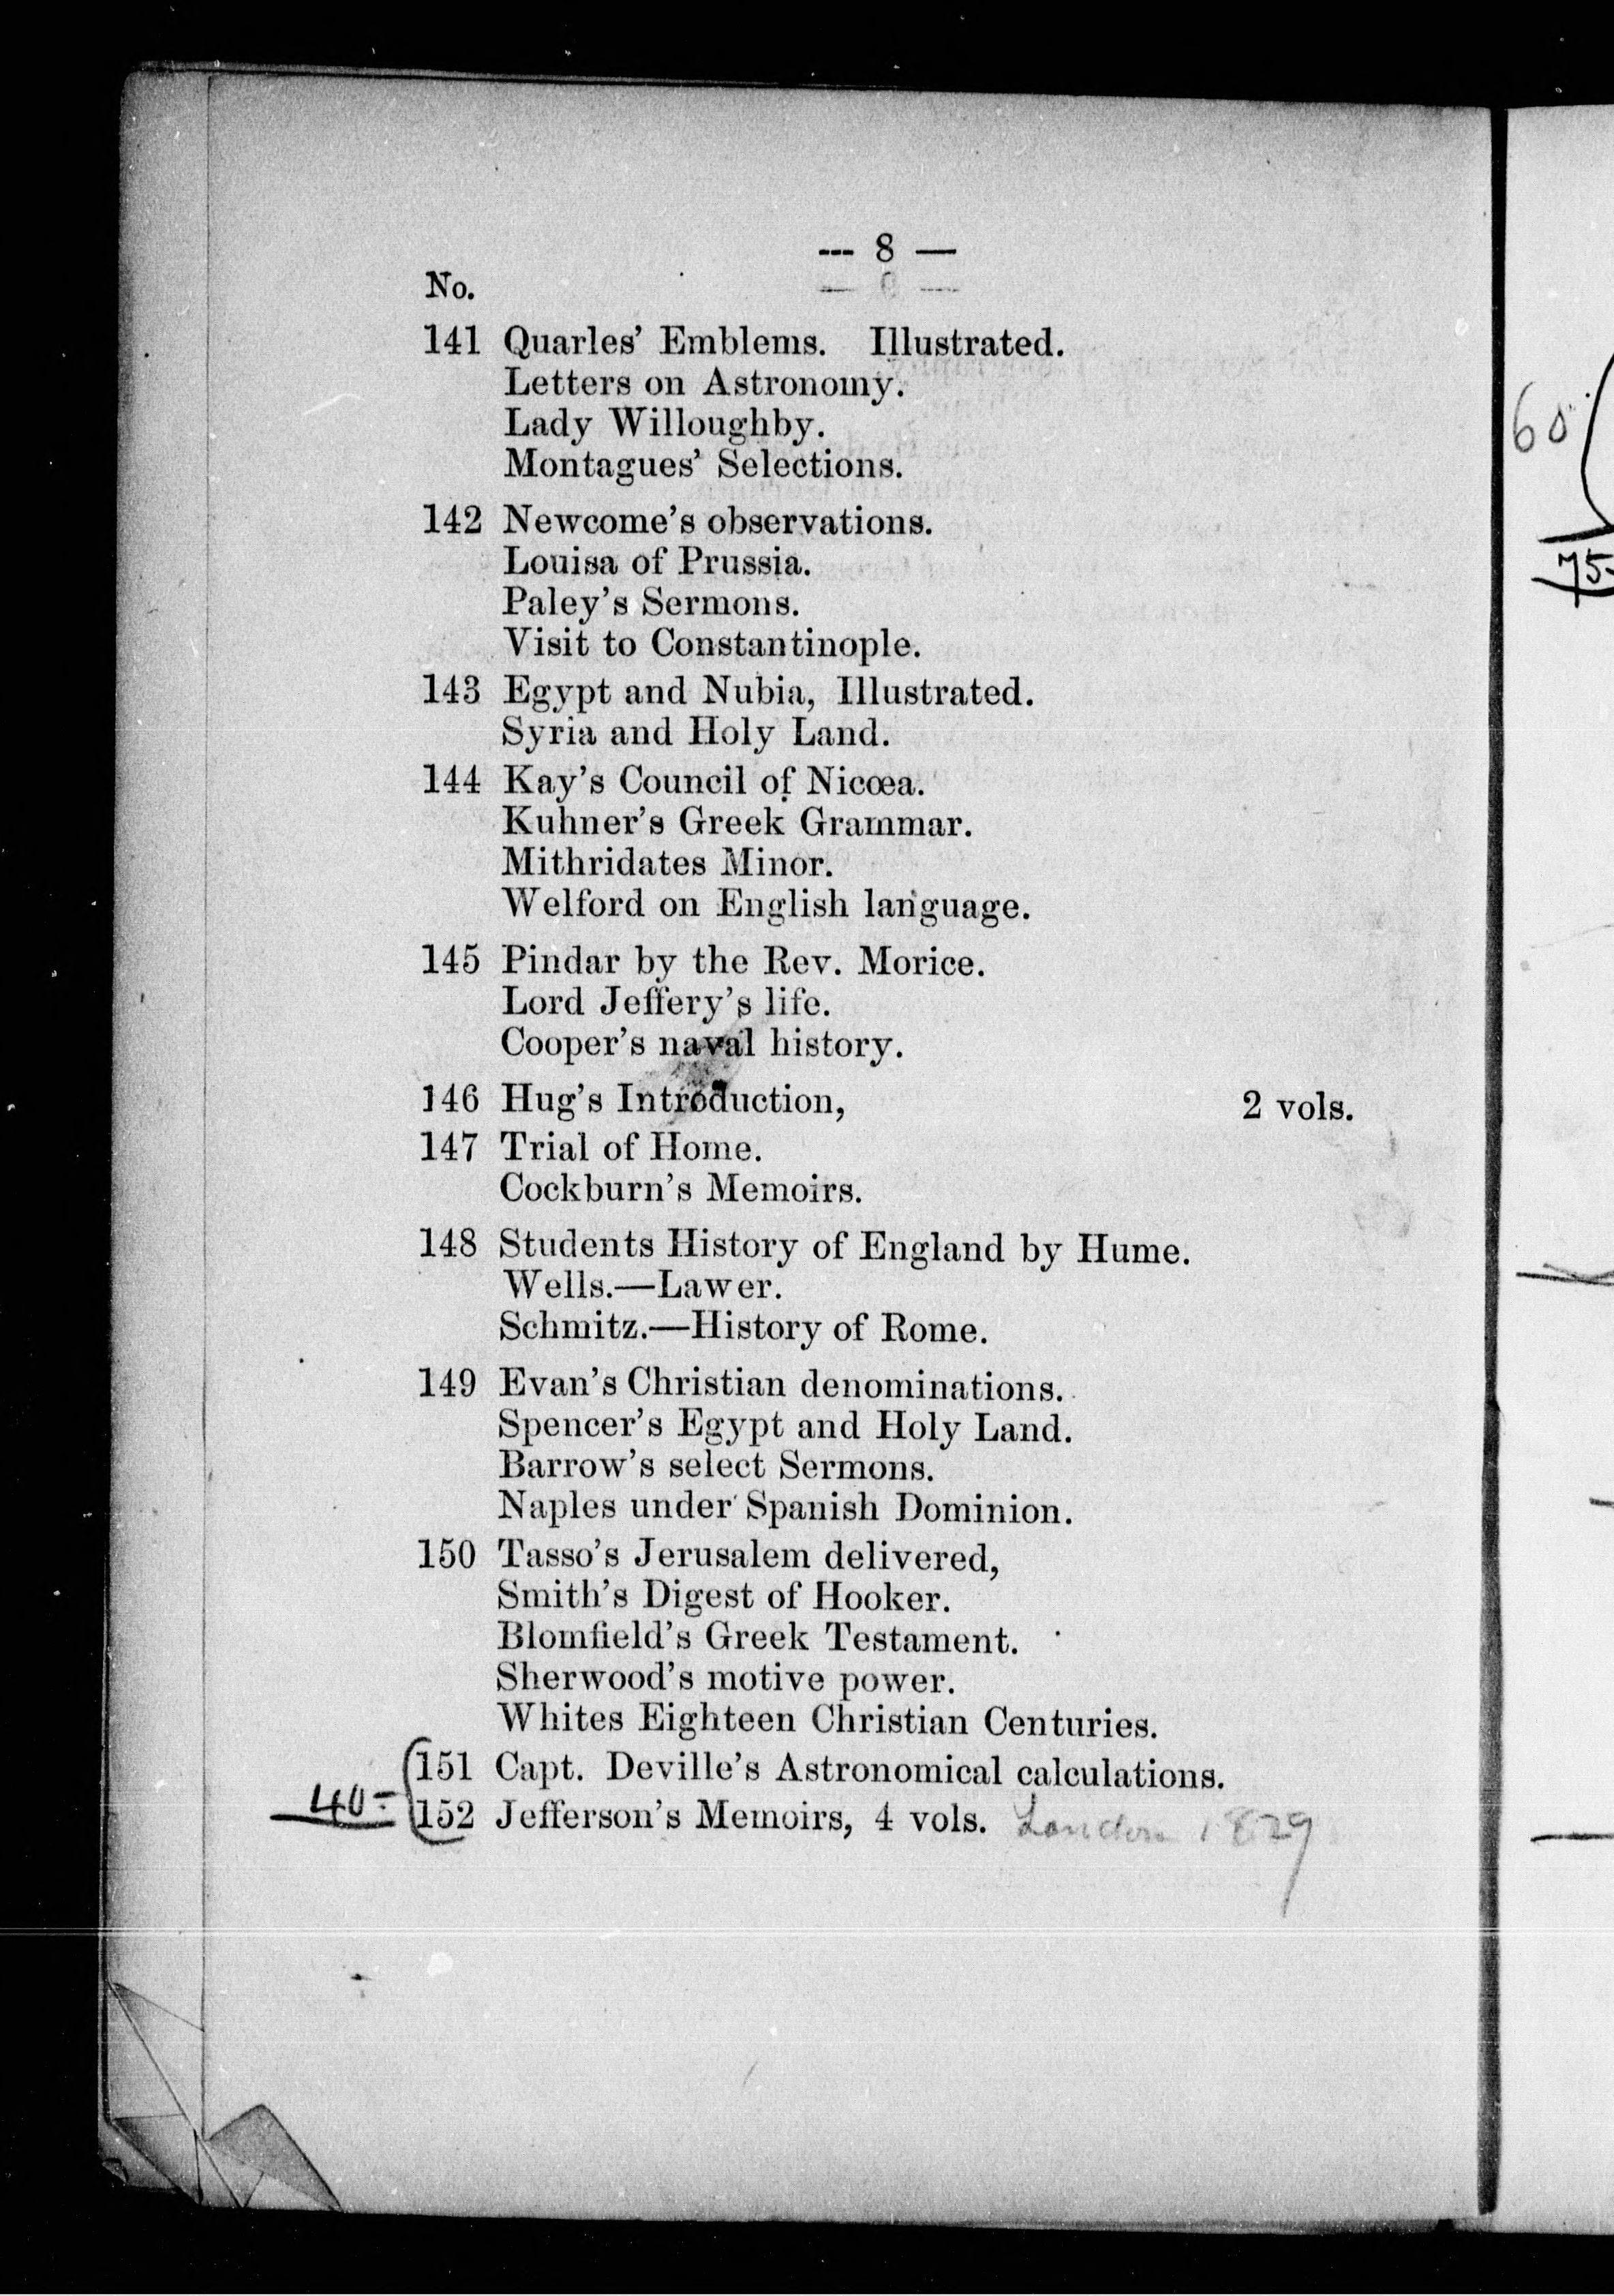 --- 8 —
No.
141 Quarles' Emblems. Illustrated.
Letters on Astronomy.
Lady Willoughby.
Montagues' Selections.
142 Newcome's observations.
Louisa of Prussia.
Paley's Sermons.
Visit to Constantinople.
143 Egypt and Nubia, Illustrated.
Syria and Holy Land.
144 Kay's Council of Nicœa.
Kuhner's Greek Grammar.
Mithridates Minor.
Welford on English language.
145 Pindar by the Rev. Morice.
Lord Jeffery's life.
Cooper's naval history.
146 Hug's Introduction, 2 vols.
147 Trial of Home.
Cockburn's Memoirs.
148 Students History of England by Hume.
Wells.—Lawer.
Schmitz.—History of Rome.
149 Evan's Christian denominations.
Spencer's Egypt and Holy Land.
Barrow's select Sermons.
Naples under Spanish Dominion.
150 Tasso's Jerusalem delivered,
Smith's Digest of Hooker.
Blomfield's Greek Testament.
Sherwood's motive power.
Whites Eighteen Christian Centuries.
151 Capt. Deville's Astronomical calculations.
40- 152 Jefferson's Memoirs, 4 vols. London 1829
60
75-